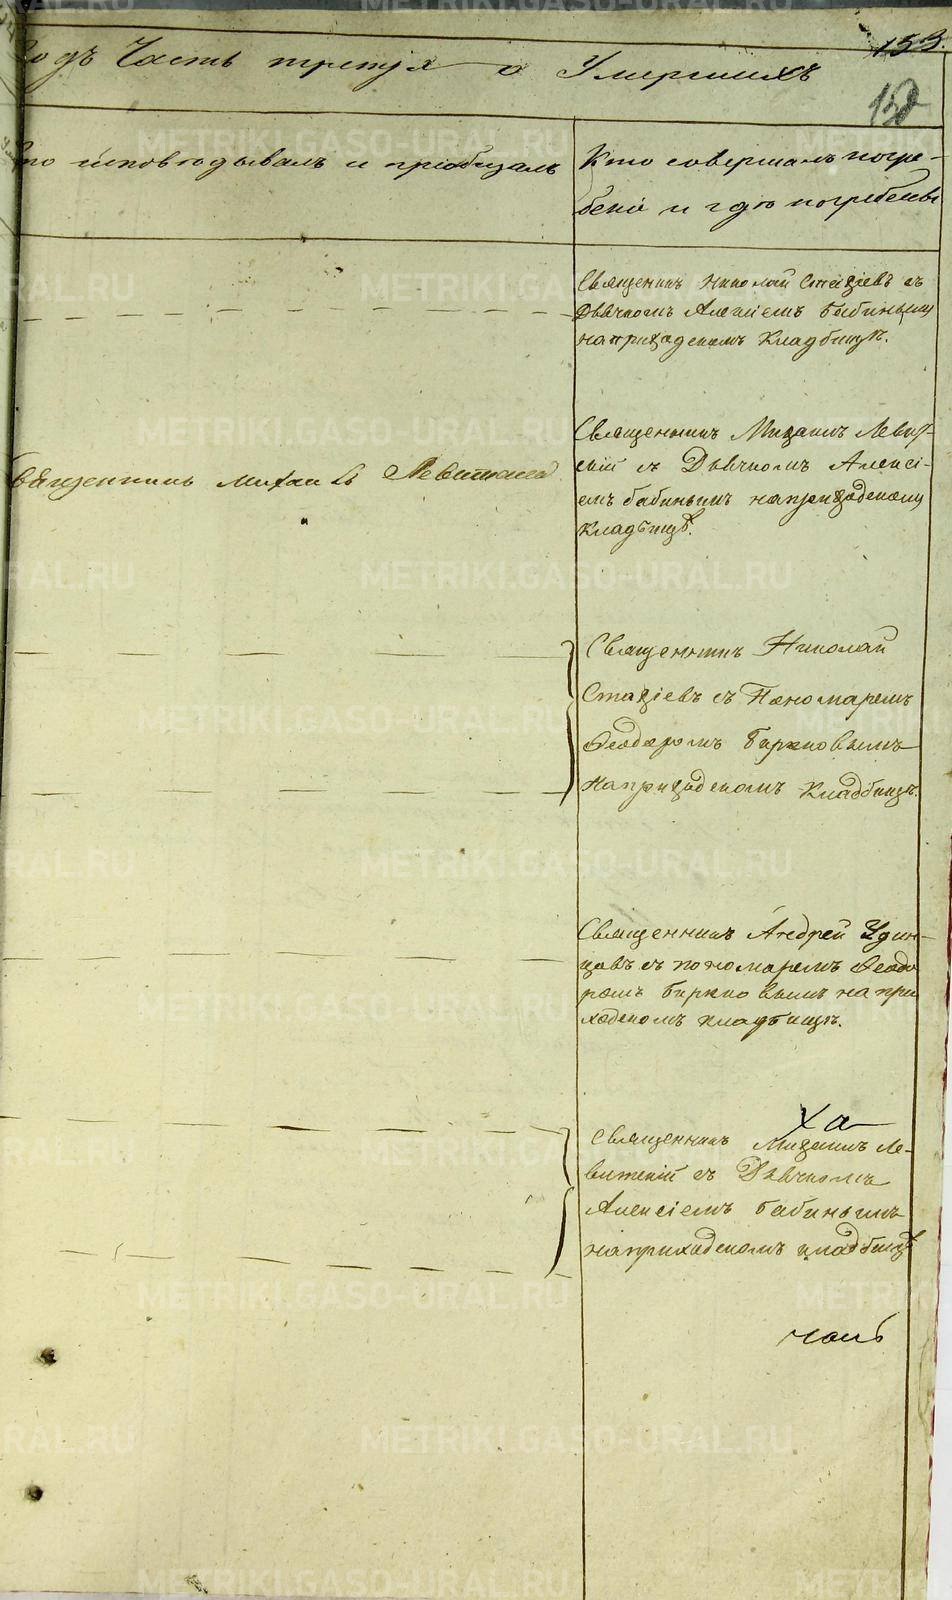 133.
Годъ Часть третія о Умершихъ
132
Кто исповѣдывалъ и пріобщалъ
Кто совершалъ погре-
беніе и гдѣ погребены
Священникъ Николай Стахіевъ съ
Дьячкомъ Алексіемъ Бабинымъ
на приходскомъ Кладбищѣ.
Священникъ Михаилъ Левит-
скій съ Дьячкомъ Алексі-
емъ Бабинымъ на приходскомъ
Кладбищѣ.
Священникъ Михаилъ Левитскій
Священникъ Николай
Стахіевъ съ Пономаремъ
Ѳеодоромъ Бирковымъ
На приходскомъ Кладбищѣ.
Священникъ Андрей Удин-
цовъ съ пономаремъ Ѳеодо
ромъ Бирковымъ на при
ходскомъ кладбищѣ.
ха
Священникъ Михаилъ Ле-
витскій съ Дьячкомъ
Алексіемъ Бабинымъ
на приходскомъ кладбищѣ
METRIKI.GASO-URAL.RU